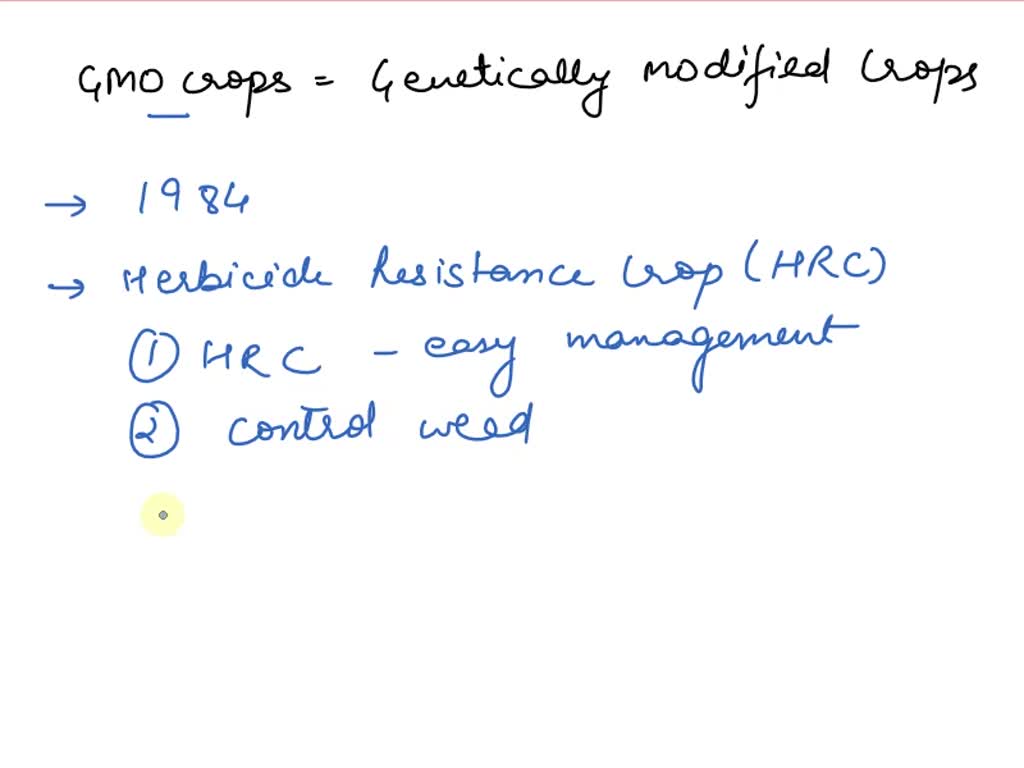 GMO crops = Genetically modified Crops
→ 1984
→ Herbicide Resistance Crop (HRC)
① HRC - easy management
② control weed